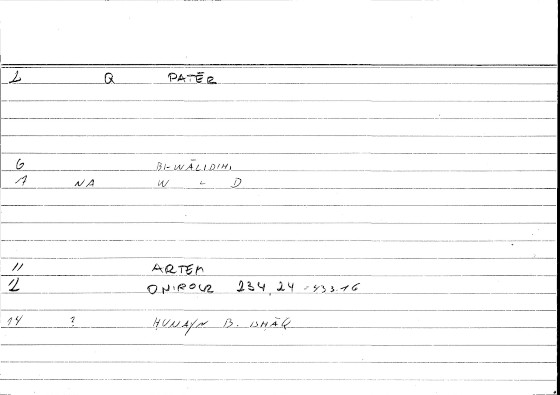 1 Q PATĒR
6 BI-WĀLIDIHI
1 NA W L D
11 ARTEM
12 ONIROCR 234,24 - 433.16
14 ? ḤUNAYN B. ISḤĀQ